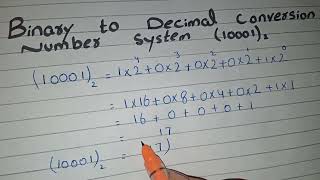 Binary to Decimal Conversion
Number System (10001)₂
(10001)₂ = 1×2⁴+0×2³+0×2²+0×2¹+1×2⁰
= 1×16+0×8+0×4+0×2+1×1
= 16+0+0+0+1
= 17
(10001)₂ = 7)